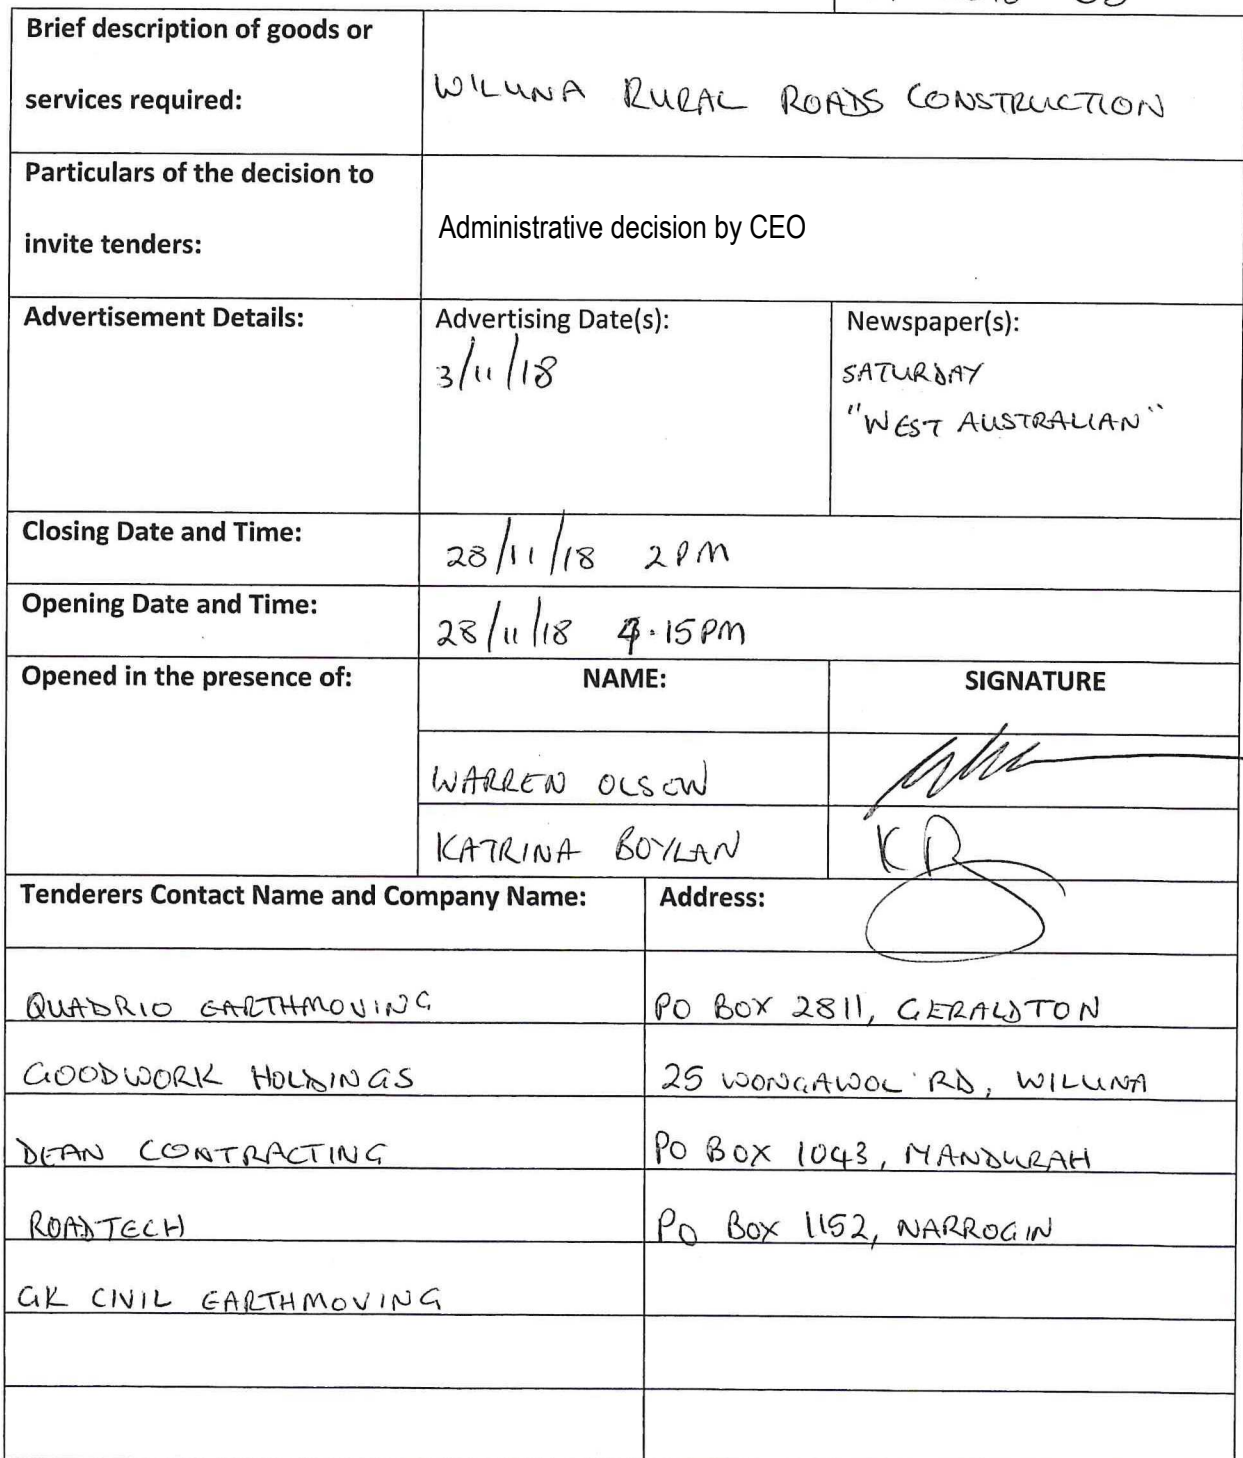 Brief description of goods or
services required:
WILUNA RURAL ROADS CONSTRUCTION
Particulars of the decision to
invite tenders:
Administrative decision by CEO
Advertisement Details:
Advertising Date(s):
3/11/18
Newspaper(s):
SATURDAY
"WEST AUSTRALIAN"
Closing Date and Time:
28/11/18 2PM
Opening Date and Time:
28/11/18 4.15PM
Opened in the presence of:
NAME:
SIGNATURE
WARREN OLSON
KATRINA BOYLAN
KB
Tenderers Contact Name and Company Name:
Address:
QUADRIO EARTHMOVING
PO BOX 2811, GERALDTON
GOODWORK HOLDINGS
25 WONGAWOL RD, WILUNA
DEAN CONTRACTING
PO BOX 1043, MANDURAH
ROADTECH
PO BOX 1152, NARROGIN
GK CIVIL EARTHMOVING